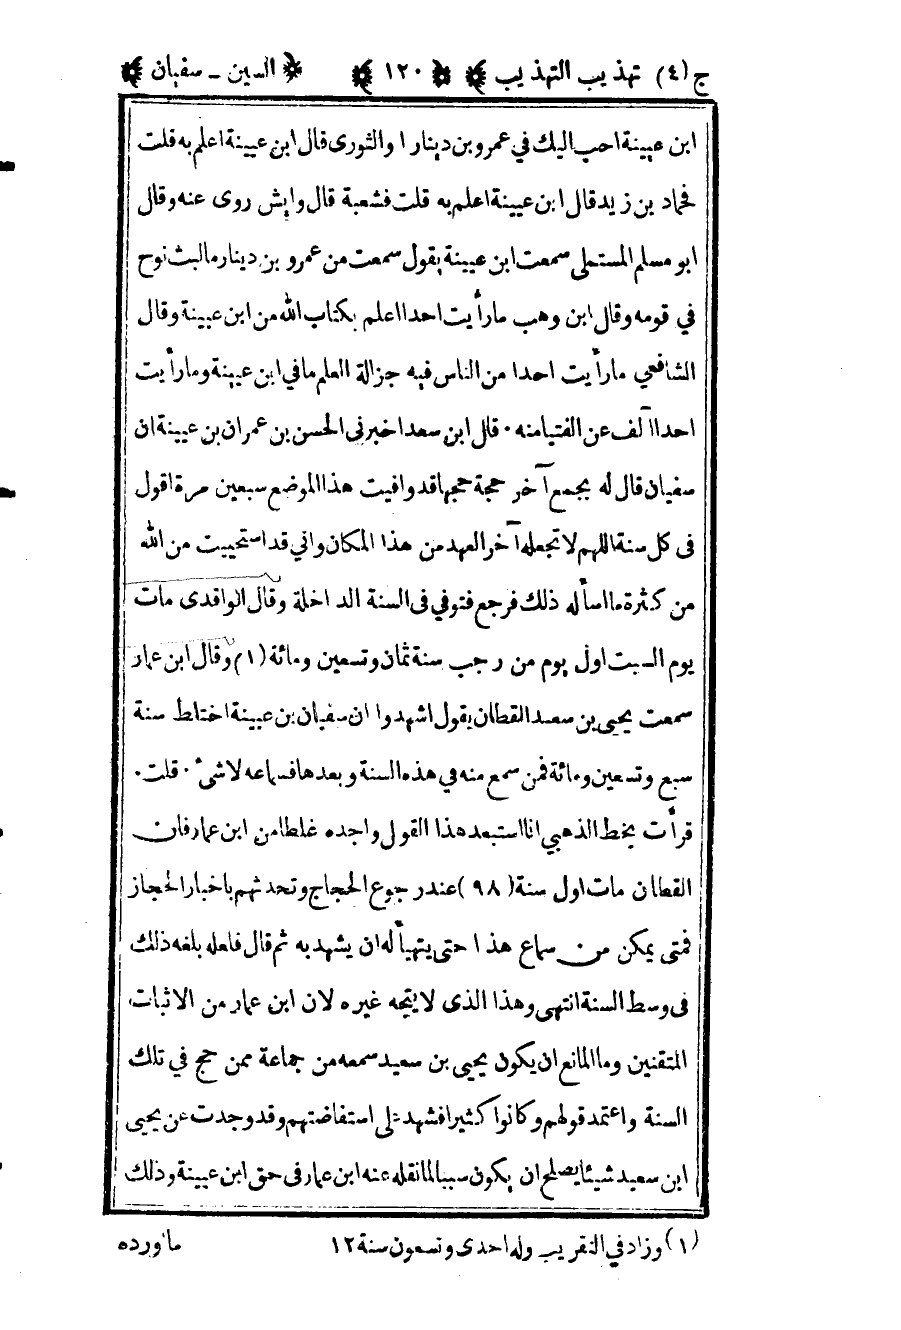 ج (٤) تهذيب التهذيب ١٢٠ السين - سفيان
ابن عيينة احب اليك في عمرو بن دينار ا والثورى قال ابن عيينة اعلم به قلت
فحماد بن زيد قال ابن عيينة اعلم به قلت فشعبة قال وايش روى عنه وقال
ابو مسلم المستملى سمعت ابن عيينة يقول سمعت من عمرو بن دينار مالبث نوح
في قومه وقال ابن وهب مارأيت احدا اعلم بكتاب الله من ابن عيينة وقال
الشافعي مارأيت احدا من الناس فيه جزالة العلم مافي ابن عيينة ومارأيت
احدا آلف عن الفتيامنه • قال ابن سعد اخبرنى الحسن بن عمران بن عيينة ان
سفيان قال له بجمع آخر حجة حجها قد وافيت هذا الموضع سبعين مرة اقول
فى كل سنة اللهم لا تجعله آخر العهد من هذا المكان واني قد استحييت من الله
من كثرة ما اسأله ذلك فرجع فتوفي فى السنة الداخلة وقال الواقدى مات
يوم السبت اول يوم من رجب سنة ثمان وتسعين ومائة (١) وقال ابن عمار
سمعت يحيى بن سعيد القطان يقول اشهدوا ان سفيان بن عيينة اختلط سنة
سبع وتسعين ومائة فمن سمع منه في هذه السنة وبعدها فسماعه لاشئ • قلت •
قرأت بخط الذهبي انا استبعد هذا القول واجده غلطا من ابن عمار فان
القطان مات اول سنة (٩٨) عند رجوع الحجاج وتحدثهم باخبار الحجاز
فمتى يمكن من سماع هذا حتى يتهيأ له ان يشهد به ثم قال فلعله بلغه ذلك
فى وسط السنة انتهى وهذا الذى لا يتجه غيره لان ابن عمار من الاثبات
المتقنين وما المانع ان يكون يحيى بن سعيد سمعه من جماعة ممن حج في تلك
السنة واعتمد قولهم وكانوا كثيرا فشهد على استفاضتهم وقد وجدت عن يحيى
ابن سعيد شيئا يصلح ان يكون سببا لما نقله عنه ابن عمار فى حق ابن عيينة وذلك
(١) وزاد في التقريب وله احدى وتسعون سنة ١٢ ما اورده